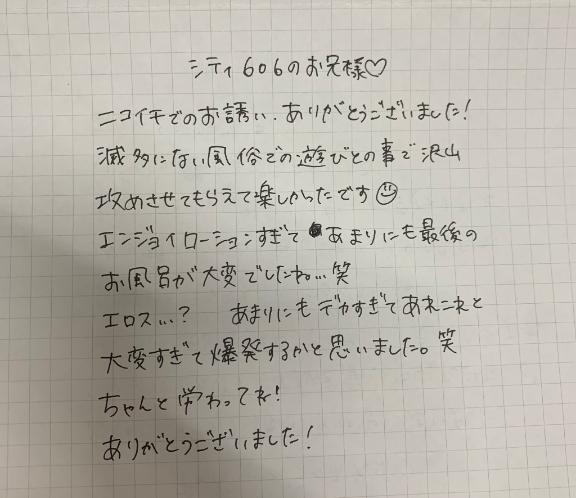 シティ606のお兄様♡
ニコイチでのお誘い、ありがとうございました!
滅多にない風俗での遊びとの事で沢山
攻めさせてもらえて楽しかったです☺
エンジョイローションすぎて あまりにも最後の
お風呂が大変でしたね…笑
エロス…? あまりにもデカすぎてあれこれと
大変すぎて爆発するかと思いました。笑
ちゃんと労わってね!
ありがとうございました!